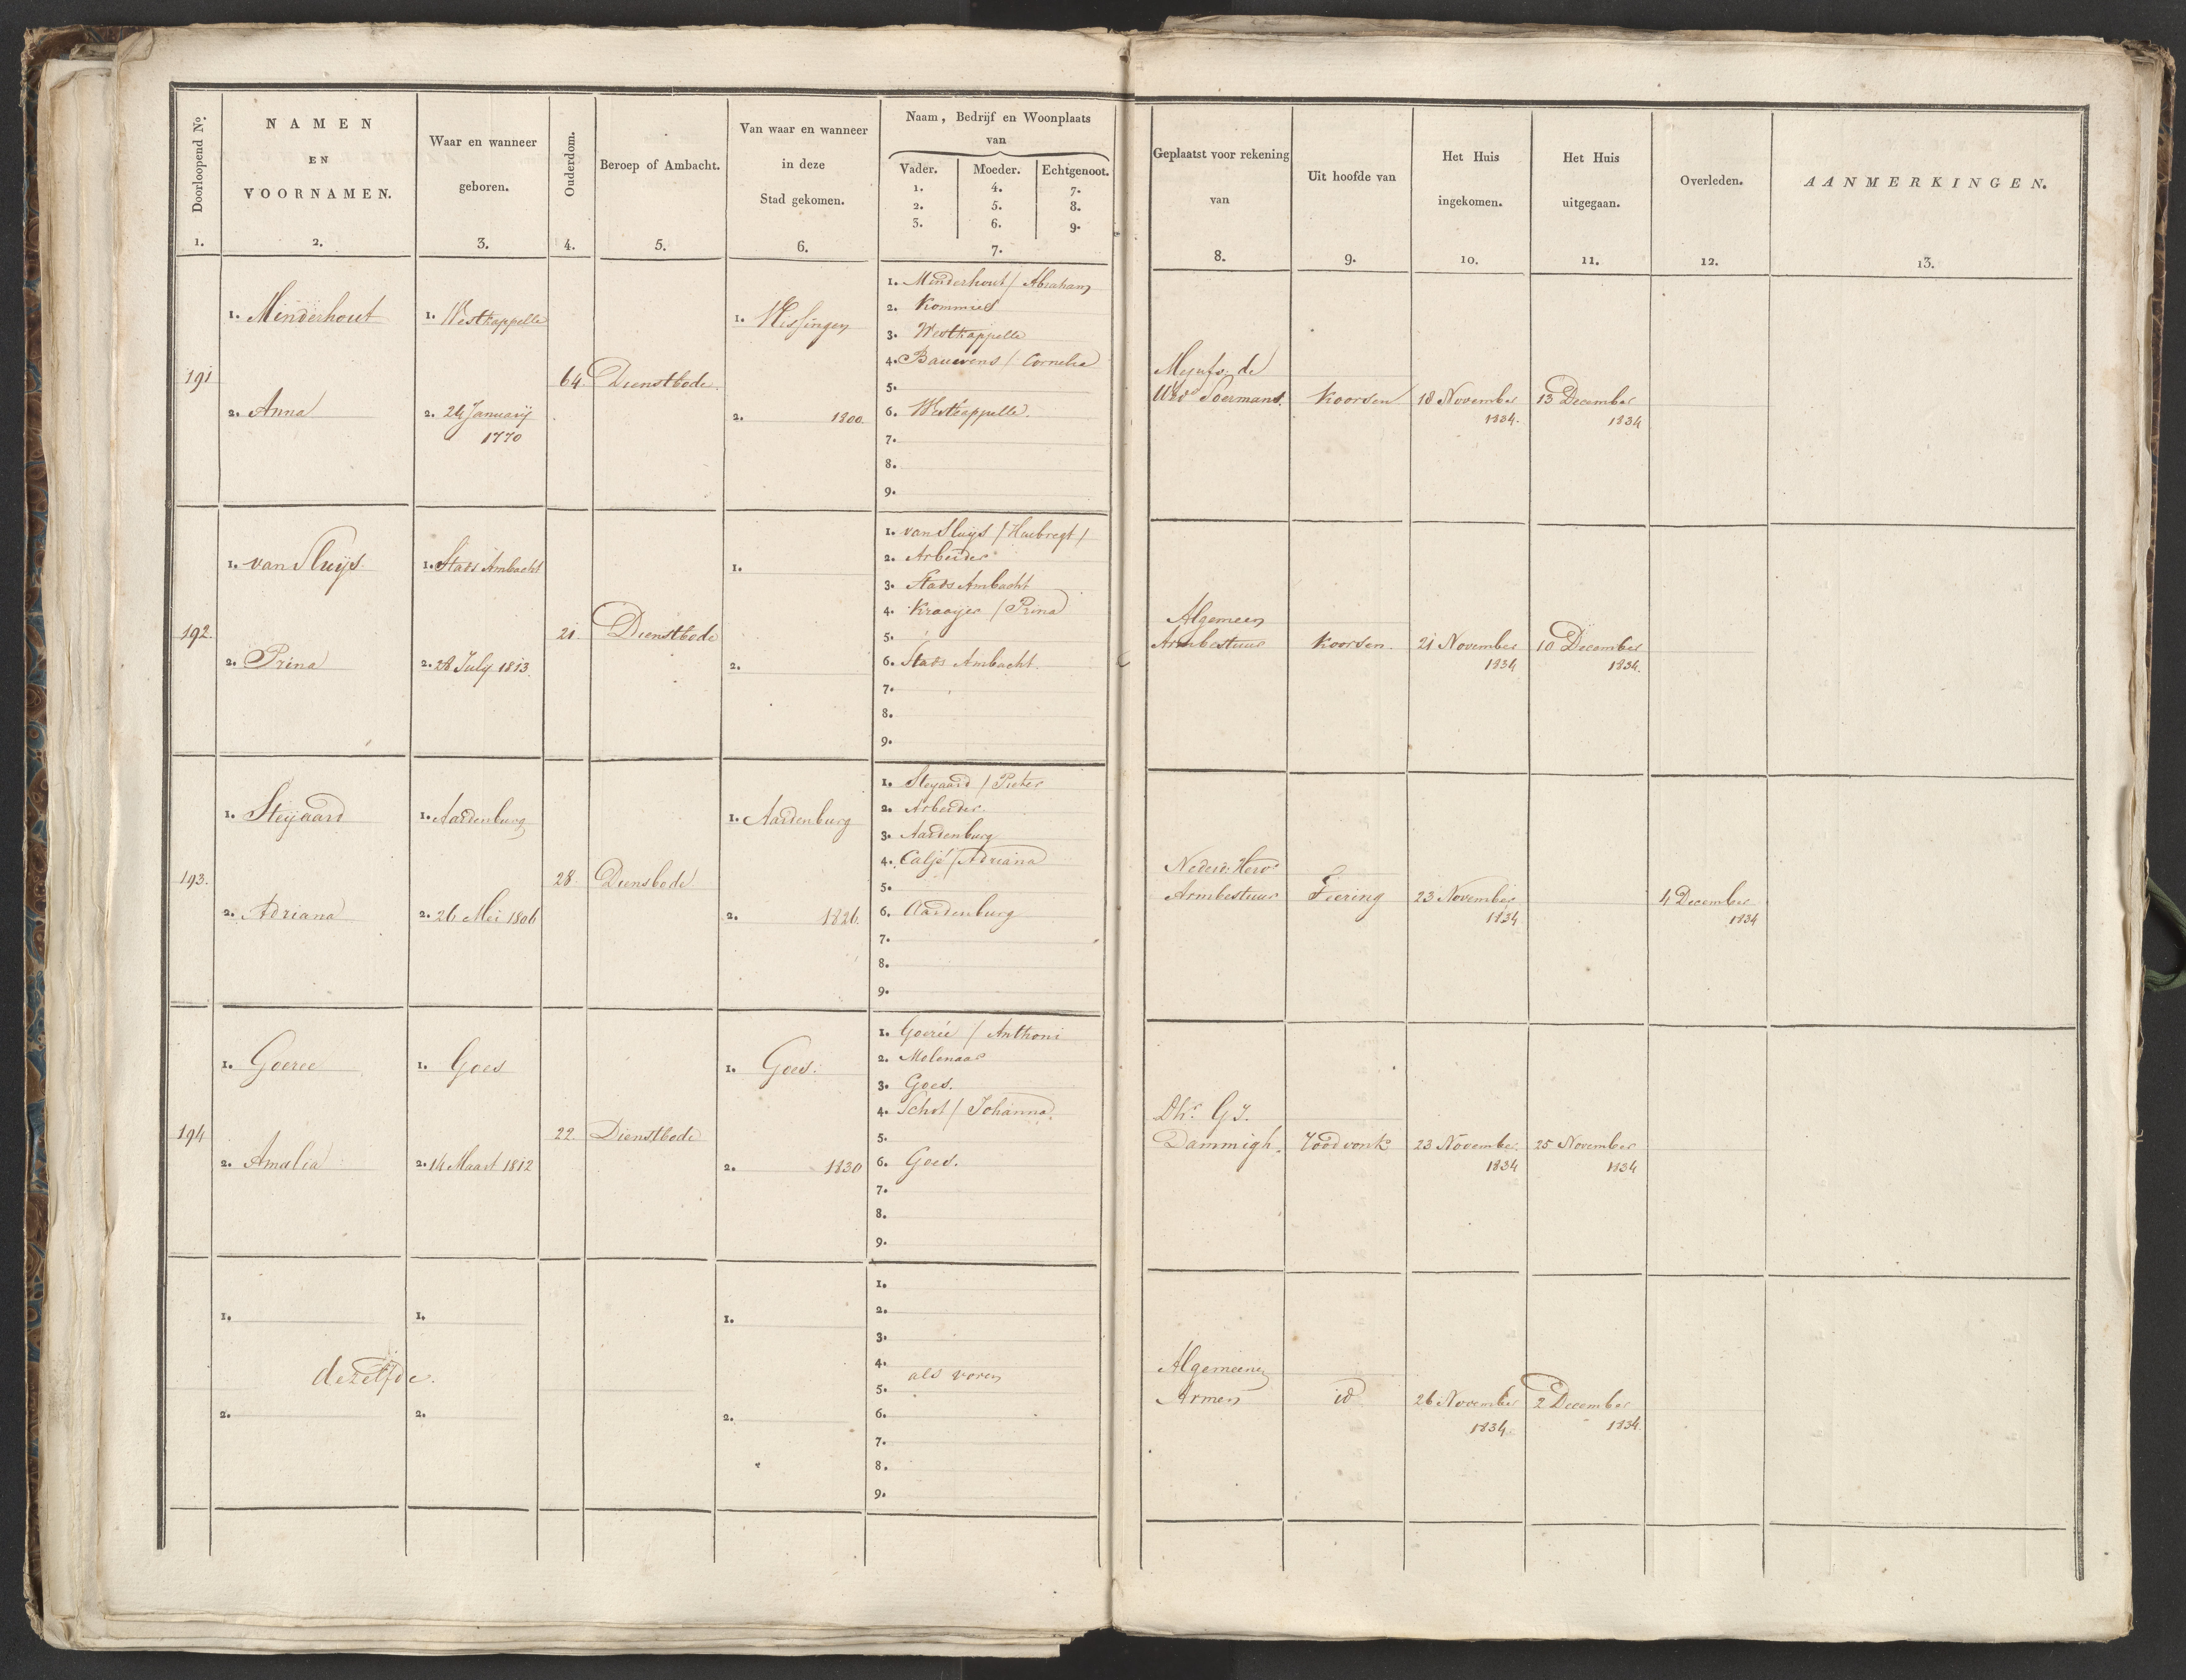 Doorloopend No.
1.
NAMEN
EN
VOORNAMEN.
2.
Waar en wanneer
geboren.
3.
Ouderdom.
4.
Beroep of Ambacht.
5.
Van waar en wanneer
in deze
Stad gekomen.
6.
Naam, Bedrijf en Woonplaats
van
Vader. Moeder. Echtgenoot.
1. 4. 7.
2. 5. 8.
3. 6. 9.
7.
Geplaatst voor rekening
van
8.
Uit hoofde van
9.
Het Huis
ingekomen.
10.
Het Huis
uitgegaan.
11.
Overleden.
12.
AANMERKINGEN.
13.
191
1. Minderhout
2. Anna
1. Westkappelle
2. 24 Januarij
1770
64
Dienstbode
1. Vlissingen
2. 1800.
1. Minderhout / Abraham
2. Kommies
3. Westkappelle
4. Bauwens / Cornelia
5.
6. Westkappelle.
7.
8.
9.
de
Koorsen
18 November
1834.
13 December
1834
192.
1. van Sluijs.
2. Prina
1. Stads Ambacht
2. 28 July 1813.
21
Dienstbode
1.
2.
1. van Sluijs / Huibregt /
2. Arbeider
3. Stads Ambacht
4. Kraaijer / Prina
5.
6. Stads Ambacht.
7.
8.
9.
Algemeen
Armbestuur
Koorsen.
21 November
1834
10 December
1834.
193.
1. Steijaard
2. Adriana
1. Aardenburg
2. 26 Mei 1806
28.
Diensbode
1. Aardenburg
2. 1826.
1. Steyaard / Pieter
2. Arbeider.
3. Aardenburg
4. Caljé / Adriana
5.
6. Aardenburg
7.
8.
9.
Nederd: Herv
Armbestuur
Teering
23 November
1834
4 December
1834
194
1. Goeree
2. Amalia
1. Goes
2. 14 Maart 1812
22.
Dienstbode
1. Goes.
2. 1830
1. Goerée / Anthoni
2. Molenaar
3. Goes.
4. Schot / Johanna.
5.
6. Goes.
7.
8.
9.
Dhr. G J.
Dammigh.
23 November.
1834
25 November
1834
1.
dezelfde.
2.
1.
2.
1.
2.
1.
2.
3.
4.
als voren
5.
6.
7.
8.
9.
Algemeene
Armen
id
26 November
1834.
2 December
1834.